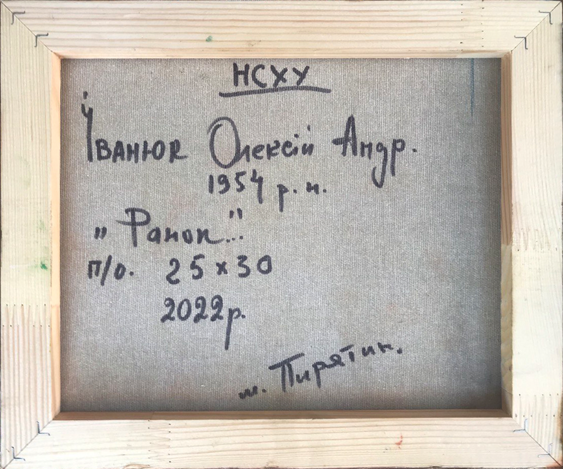 НСХУ
Іванюк Олексій Андр.
1954 р. н.
„Ранок..."
п/о. 25 x 30
2022р.
м. Пирятин.